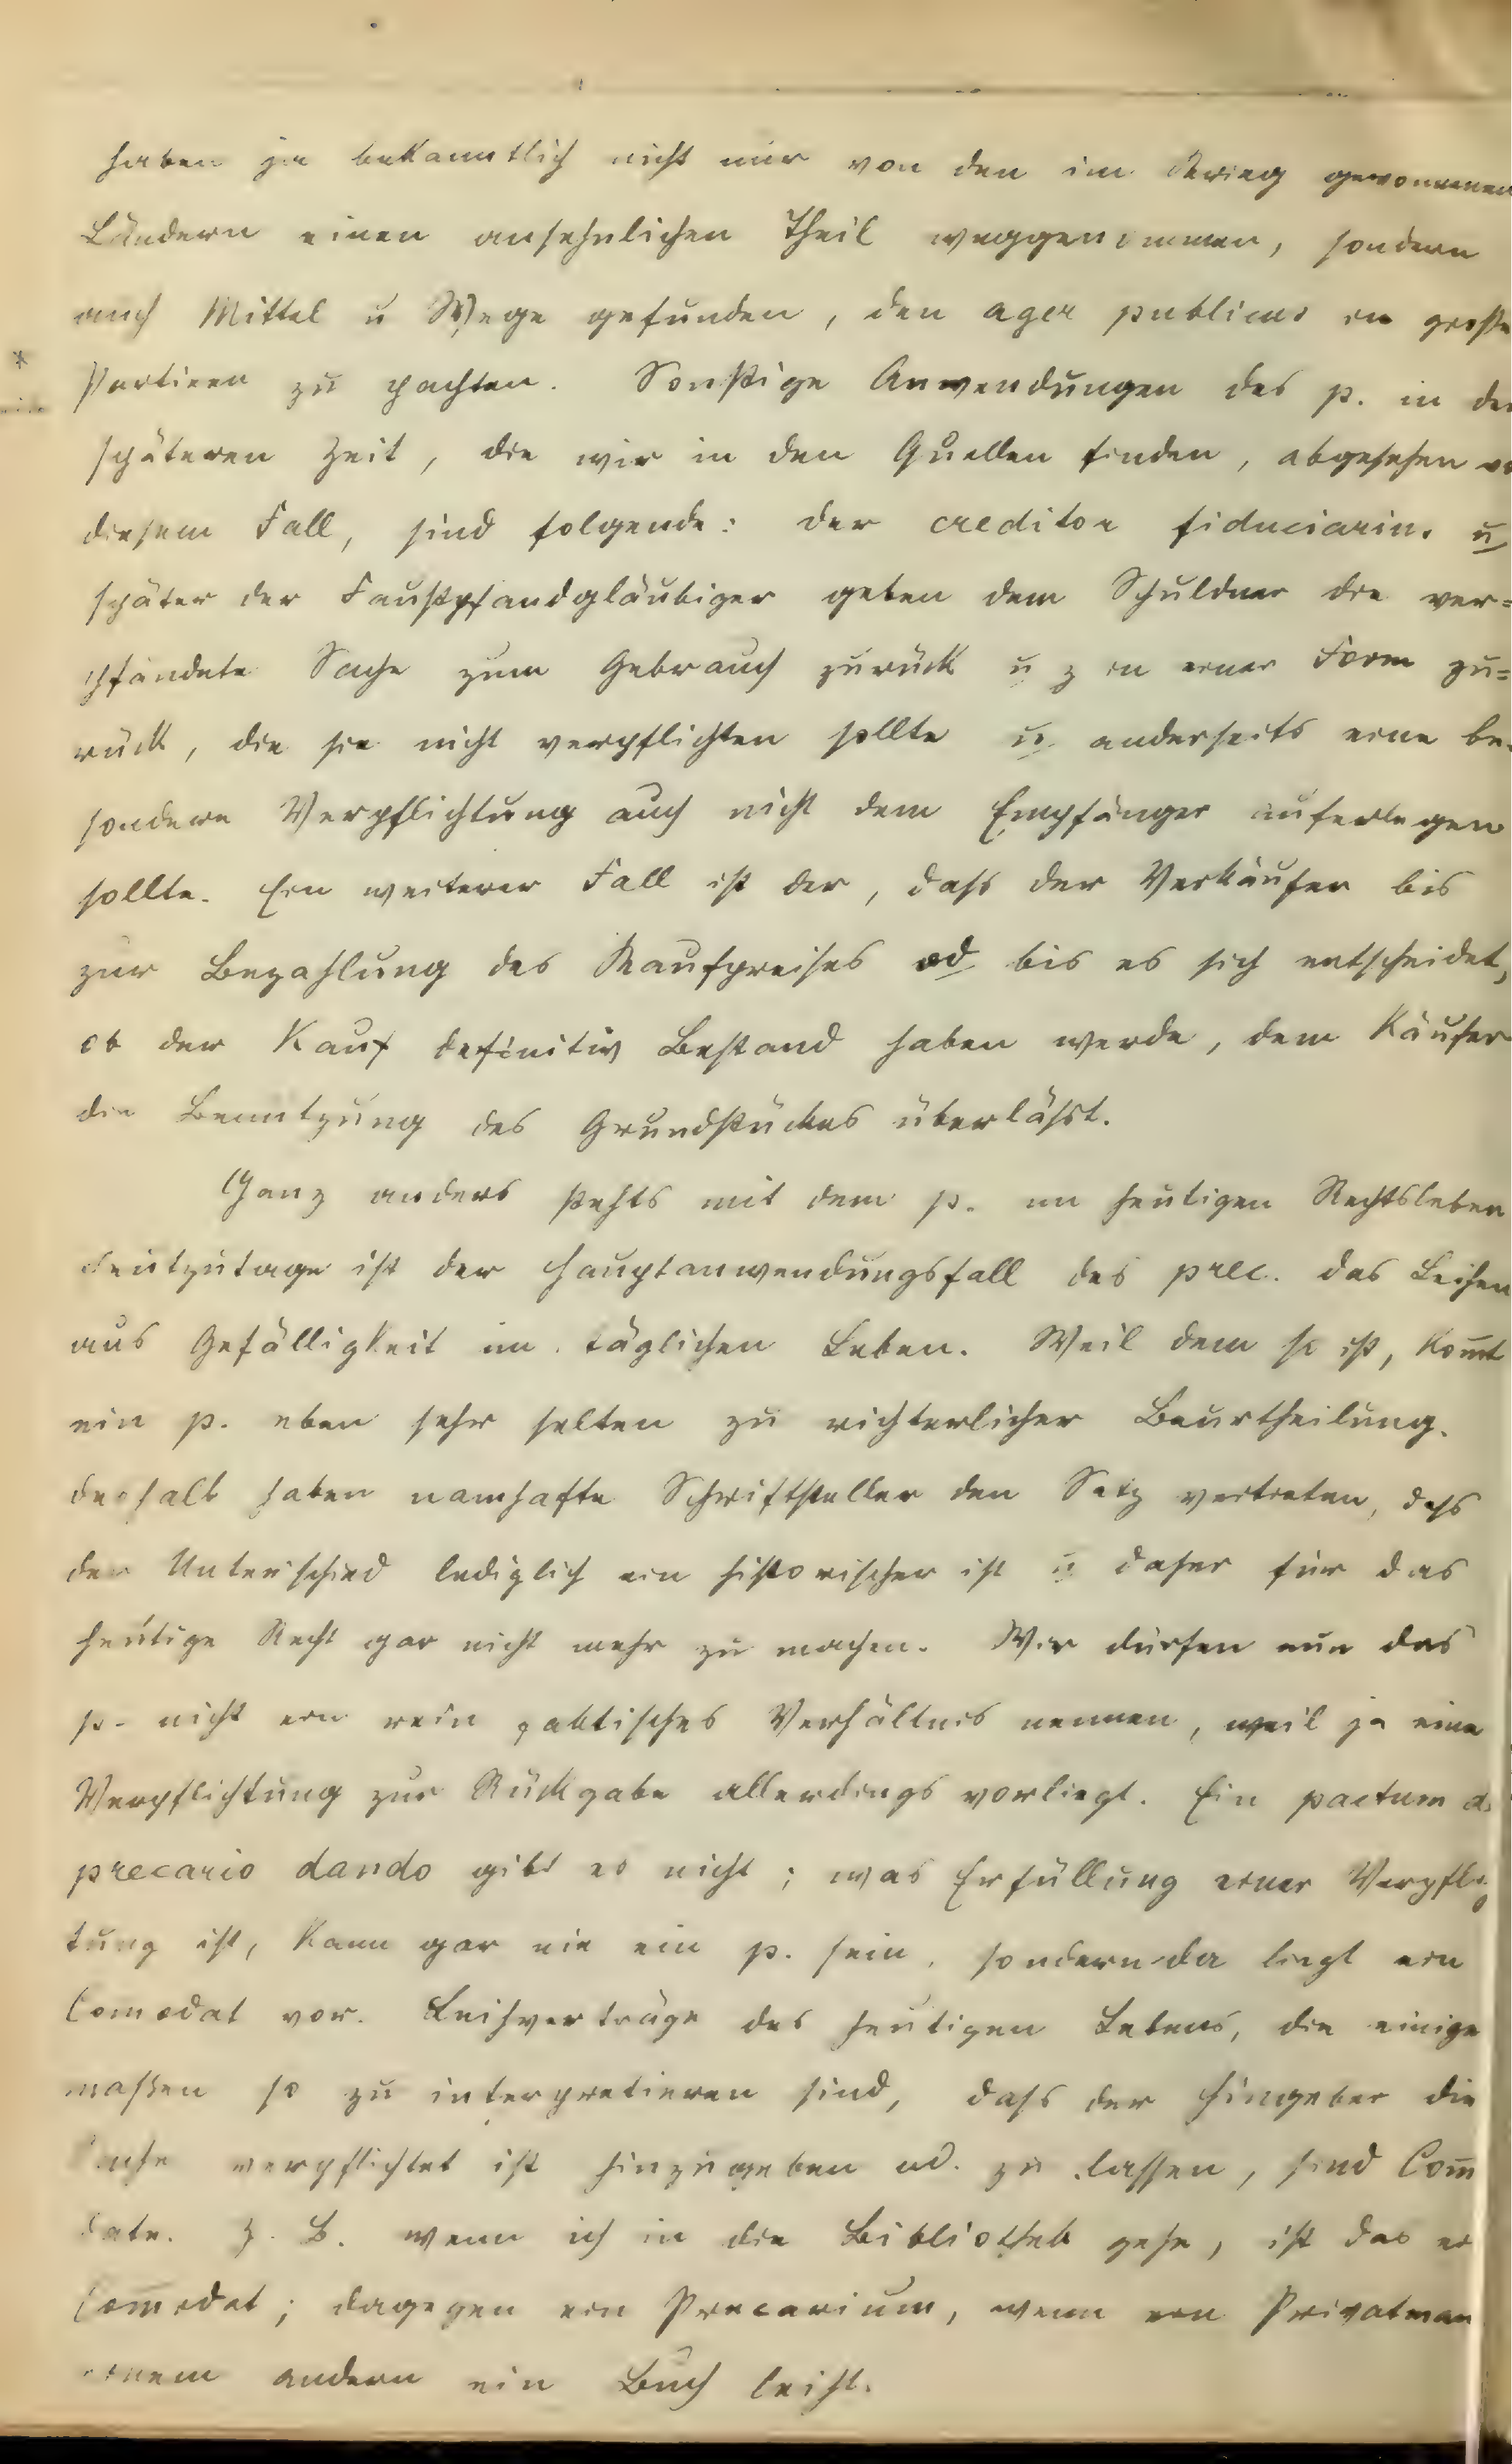 haben ja bekanntlich nicht nur von den im Krieg gewonnenen
Ländern einen ansehnlichen Theil weggenommen, sondern
auch Mittel u Wege gefunden, den ager publicus in große
Partieen zu pachten. Sonstige Anwendungen des p. in der
späteren Zeit, die wir in den Quellen finden, abgesehen vo
diesem Fall, sind folgende: der creditor fiduciarius u
später der Faustpfandgläubiger geben dem Schuldner die ver=
pfändete Sache zum Gebrauch zurück u z in einer Form zu=
rück, die sie nicht verpflichten sollte u anderseits eine be-
sondere Verpflichtung auch nicht dem Empfänger auferlegen
sollte. Ein weiterer Fall ist der, dass der Verkäufer bis
zur Bezahlung des Kaufpreises od bis es sich entscheidet,
ob der Kauf definitiv Bestand haben werde, dem Käufer
die Benutzung des Grundstückes überlässt.
Ganz anders stehts mit dem p. im heutigen Rechtsleben
Heutzutage ist der Hauptanwendungsfall des prec. das Leihen
aus Gefälligkeit im täglichen Leben. Weil dem so ist, kom̅t
ein p. eben sehr selten zu richterlicher Beurtheilung.
deshalb haben namhafte Schriftsteller den Satz vertreten, dass
der Unterschied lediglich ein historischer ist u daher für das
heutige Recht gar nicht mehr zu machen. Wir dürfen nun das
p. nicht ein rein faktisches Verhältnis nennen, weil ja eine
Verpflichtung zur Rückgabe allerdings vorliegt. Ein pactum d
precario dando gibt es nicht; was Erfüllung einer Verpflich
tung ist, kann gar nie ein p. sein, sondern da liegt ein
Com̅odat vor. Leihverträge des heutigen Lebens, die einiger
maßen so zu interpretieren sind, dass der Hingeber die
Sache verpflichtet ist hinzugeben od. zu lassen, sind Com̅
date. Z. B. wenn ich in die Bibliothek gehe, ist das ei
Com̅odat; dagegen ein Precarium, wenn ein Privatman
einem andern ein Buch leiht.